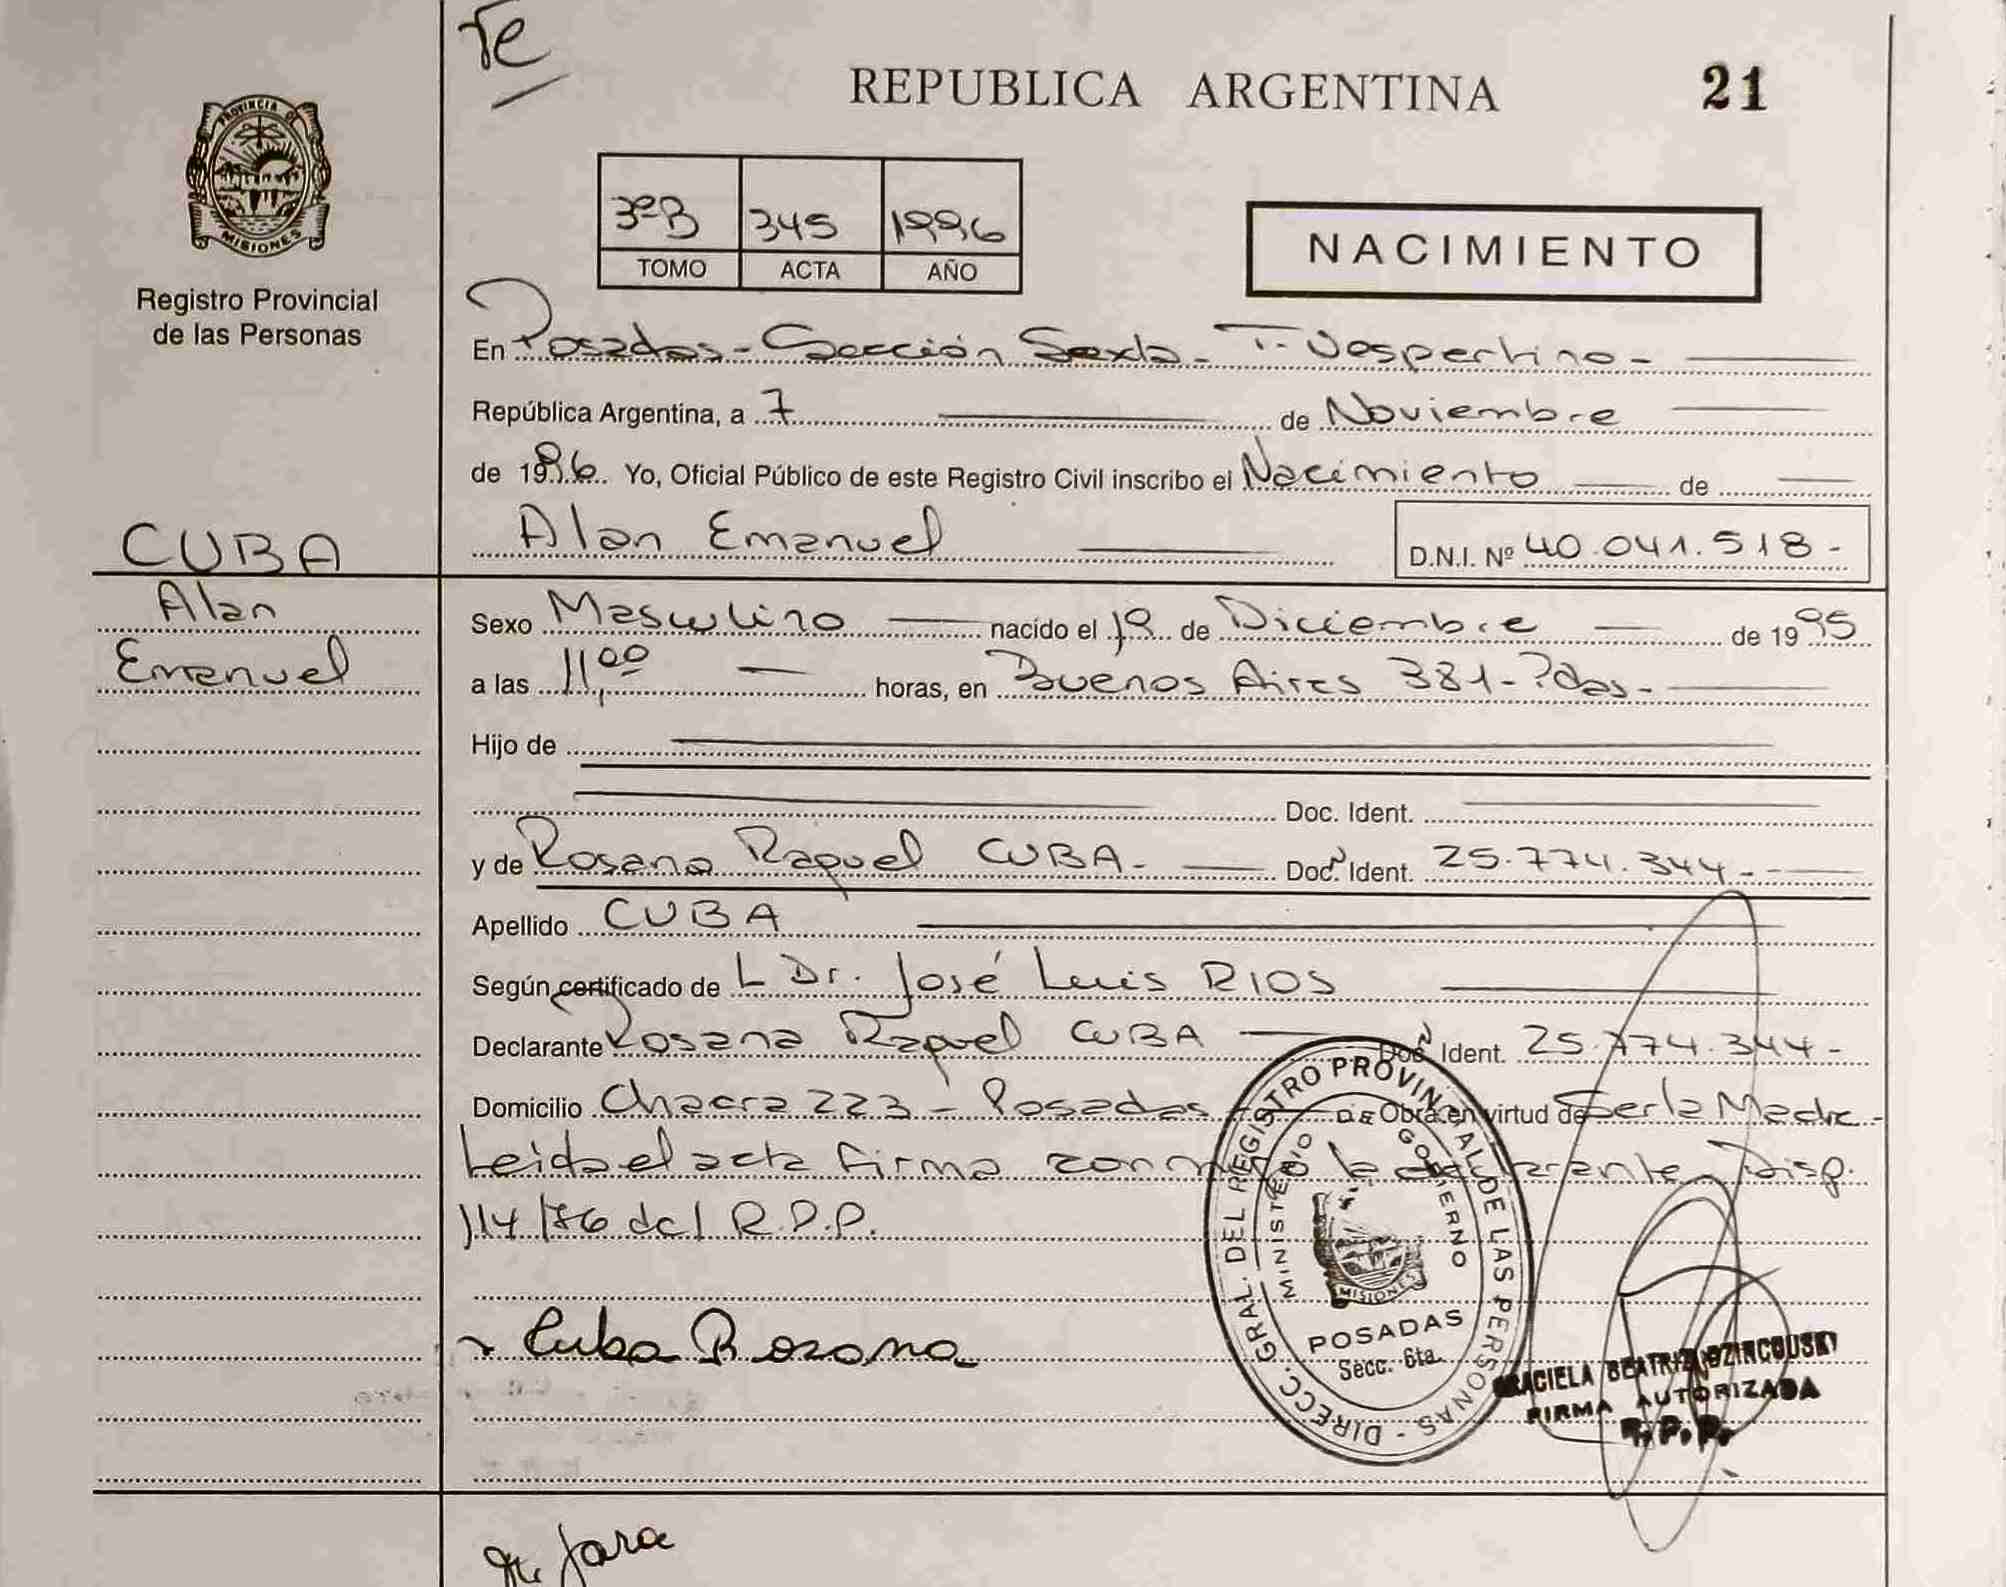 Te
REPUBLICA ARGENTINA 21
PROVINCIA DE
MISIONES
Registro Provincial
de las Personas
3ºB 345 1996
TOMO ACTA AÑO
NACIMIENTO
En Posadas - Sección Sexta - T. Vespertino -
República Argentina, a 7 de Noviembre
de 1996. Yo, Oficial Público de este Registro Civil inscribo el Nacimiento de
Alan Emanuel D.N.I. Nº 40.041.518-
CUBA
Alan
Emanuel
Sexo Masculino nacido el 19 de Diciembre de 1995
a las 11,00 horas, en Buenos Aires 381 - Pdas -
Hijo de
Doc. Ident.
y de Rosana Raquel CUBA - Doc. Ident. 25.774.344 -
Apellido CUBA
Según certificado de L Dr. José Luis RIOS
Declarante Rosana Raquel CUBA Doc. Ident. 25.774.344 -
Domicilio Chacra 223 - Posadas Obra en virtud de Ser la Madre -
Leida el acta firma conmigo la declarante - Disp.
114/86 del R.P.P.
Cuba Rosana
DIRECC. GRAL. DEL REGISTRO PROVINCIAL DE LAS PERSONAS -
MINISTERIO DE GOBIERNO
MISIONES
POSADAS
Secc. 6ta.
GRACIELA BEATRIZ
FIRMA AUTORIZADA
R.P.P.
Jara